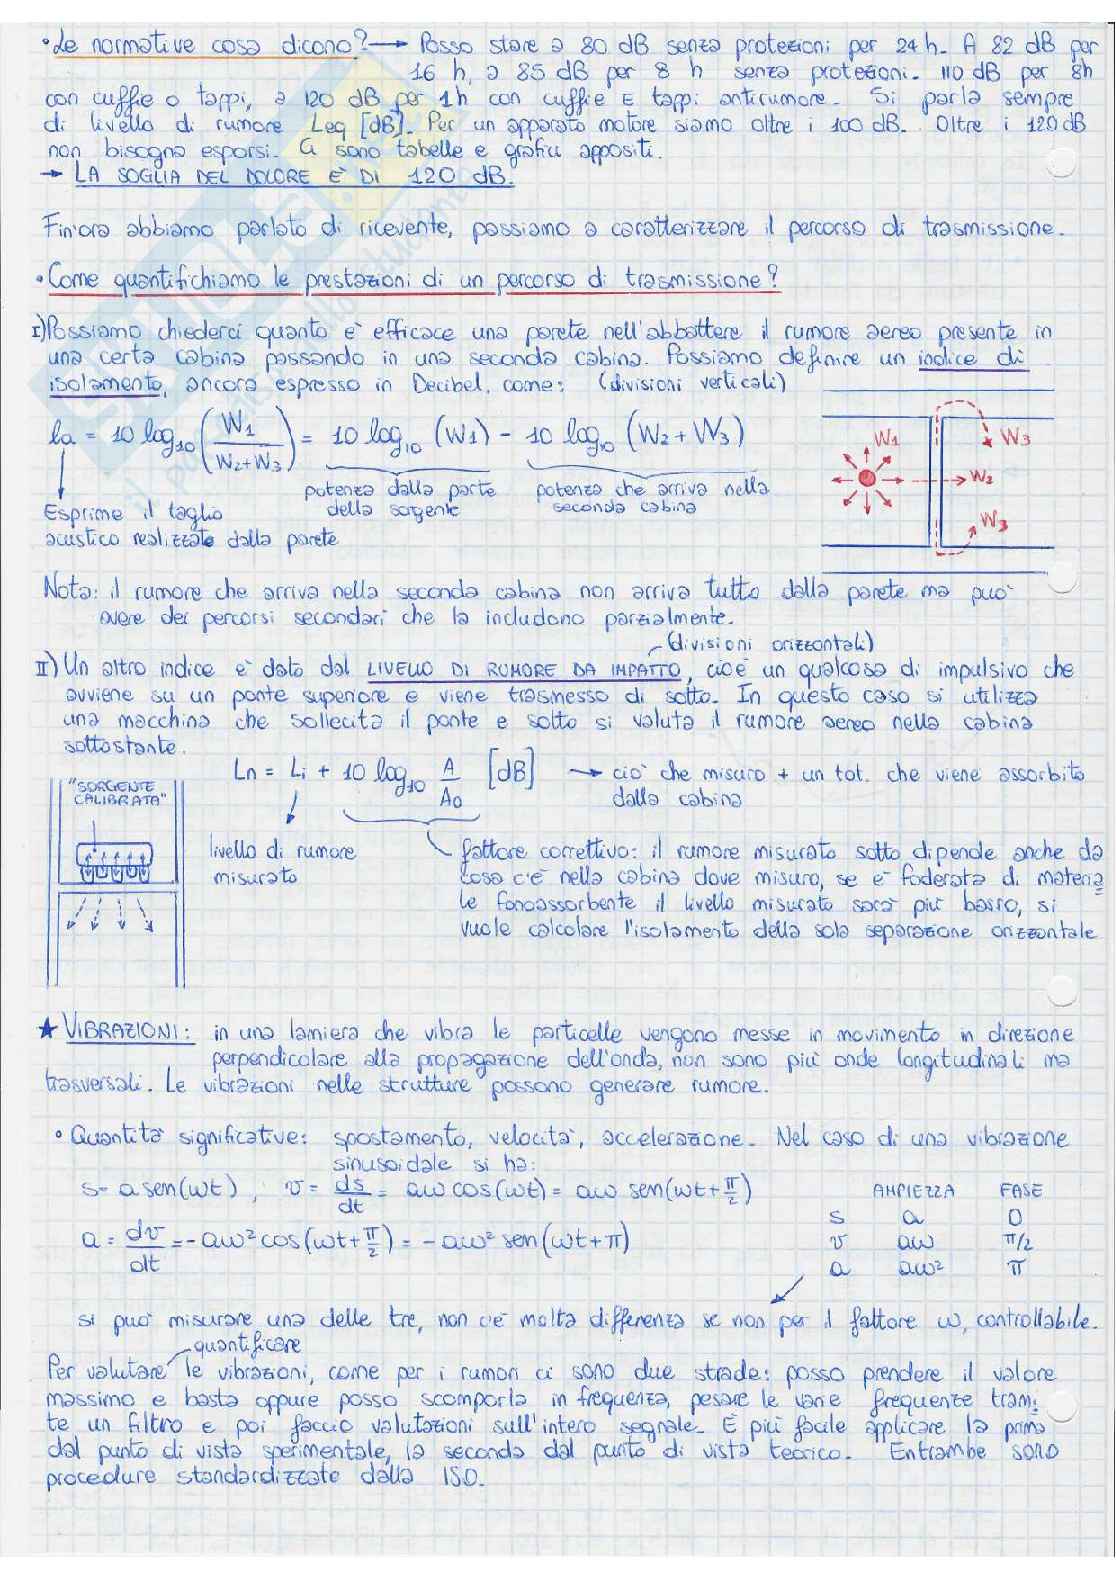 • Le normative cosa dicono? → Posso stare a 80 dB senza protezioni per 24 h. A 82 dB per
16 h, a 85 dB per 8 h senza protezioni. 110 dB per 8h
con cuffie o tappi, a 120 dB per 1h con cuffie E tappi antirumore. Si parla sempre
di livello di rumore Leq [dB]. Per un apparato motore siamo oltre i 100 dB. Oltre i 120 dB
non bisogna esporsi. Ci sono tabelle e grafici appositi.
→ LA SOGLIA DEL DOLORE È DI 120 dB.
Fin'ora abbiamo parlato di ricevente, passiamo a caratterizzare il percorso di trasmissione.
• Come quantifichiamo le prestazioni di un percorso di trasmissione?
I) Possiamo chiederci quanto è efficace una parete nell'abbattere il rumore aereo presente in
una certa cabina passando in una seconda cabina. Possiamo definire un indice di
isolamento, ancora espresso in Decibel, come: (divisioni verticali)
Ia = 10 log10 (W1 / (W2+W3)) = 10 log10 (W1) - 10 log10 (W2 + W3)
W1 W3
W2
W3
potenza dalla parte potenza che arriva nella
della sorgente seconda cabina
Esprime il taglio
acustico realizzato dalla parete
Nota: il rumore che arriva nella seconda cabina non arriva tutto dalla parete ma può
avere dei percorsi secondari che la includono parzialmente.
(divisioni orizzontali)
II) Un altro indice è dato dal LIVELLO DI RUMORE DA IMPATTO, cioè un qualcosa di impulsivo che
avviene su un ponte superiore e viene trasmesso di sotto. In questo caso si utilizza
una macchina che sollecita il ponte e sotto si valuta il rumore aereo nella cabina
sottostante.
Ln = Li + 10 log10 A/A0 [dB] → ciò che misuro + un tot. che viene assorbito
dalla cabina
"SORGENTE
CALIBRATA"
livello di rumore
misurato
fattore correttivo: il rumore misurato sotto dipende anche da
cosa c'è nella cabina dove misuro, se è foderata di materia
le fonoassorbente il livello misurato sarà più basso, si
vuole calcolare l'isolamento della sola separazione orizzontale
★ VIBRAZIONI: in una lamiera che vibra le particelle vengono messe in movimento in direzione
perpendicolare alla propagazione dell'onda, non sono più onde longitudinali ma
trasversali. Le vibrazioni nelle strutture possono generare rumore.
• Quantità significative: spostamento, velocità, accelerazione. Nel caso di una vibrazione
sinusoidale si ha:
s= a sen(ωt), v = ds/dt = aω cos(ωt) = aω sen(ωt+π/2)
AMPIEZZA FASE
s a 0
a = dv/dt = -aω² cos(ωt+π/2) = -aω² sen(ωt+π)
v aω π/2
a aω² π
si può misurare una delle tre, non c'è molta differenza se non per il fattore ω, controllabile.
quantificare
Per valutare le vibrazioni, come per i rumori ci sono due strade: posso prendere il valore
massimo e basta oppure posso scomporla in frequenza, pesare le varie frequenze trami
te un filtro e poi faccio valutazioni sull'intero segnale. È più facile applicare la prima
dal punto di vista sperimentale, la seconda dal punto di vista teorico. Entrambe sono
procedure standardizzate dalla ISO.